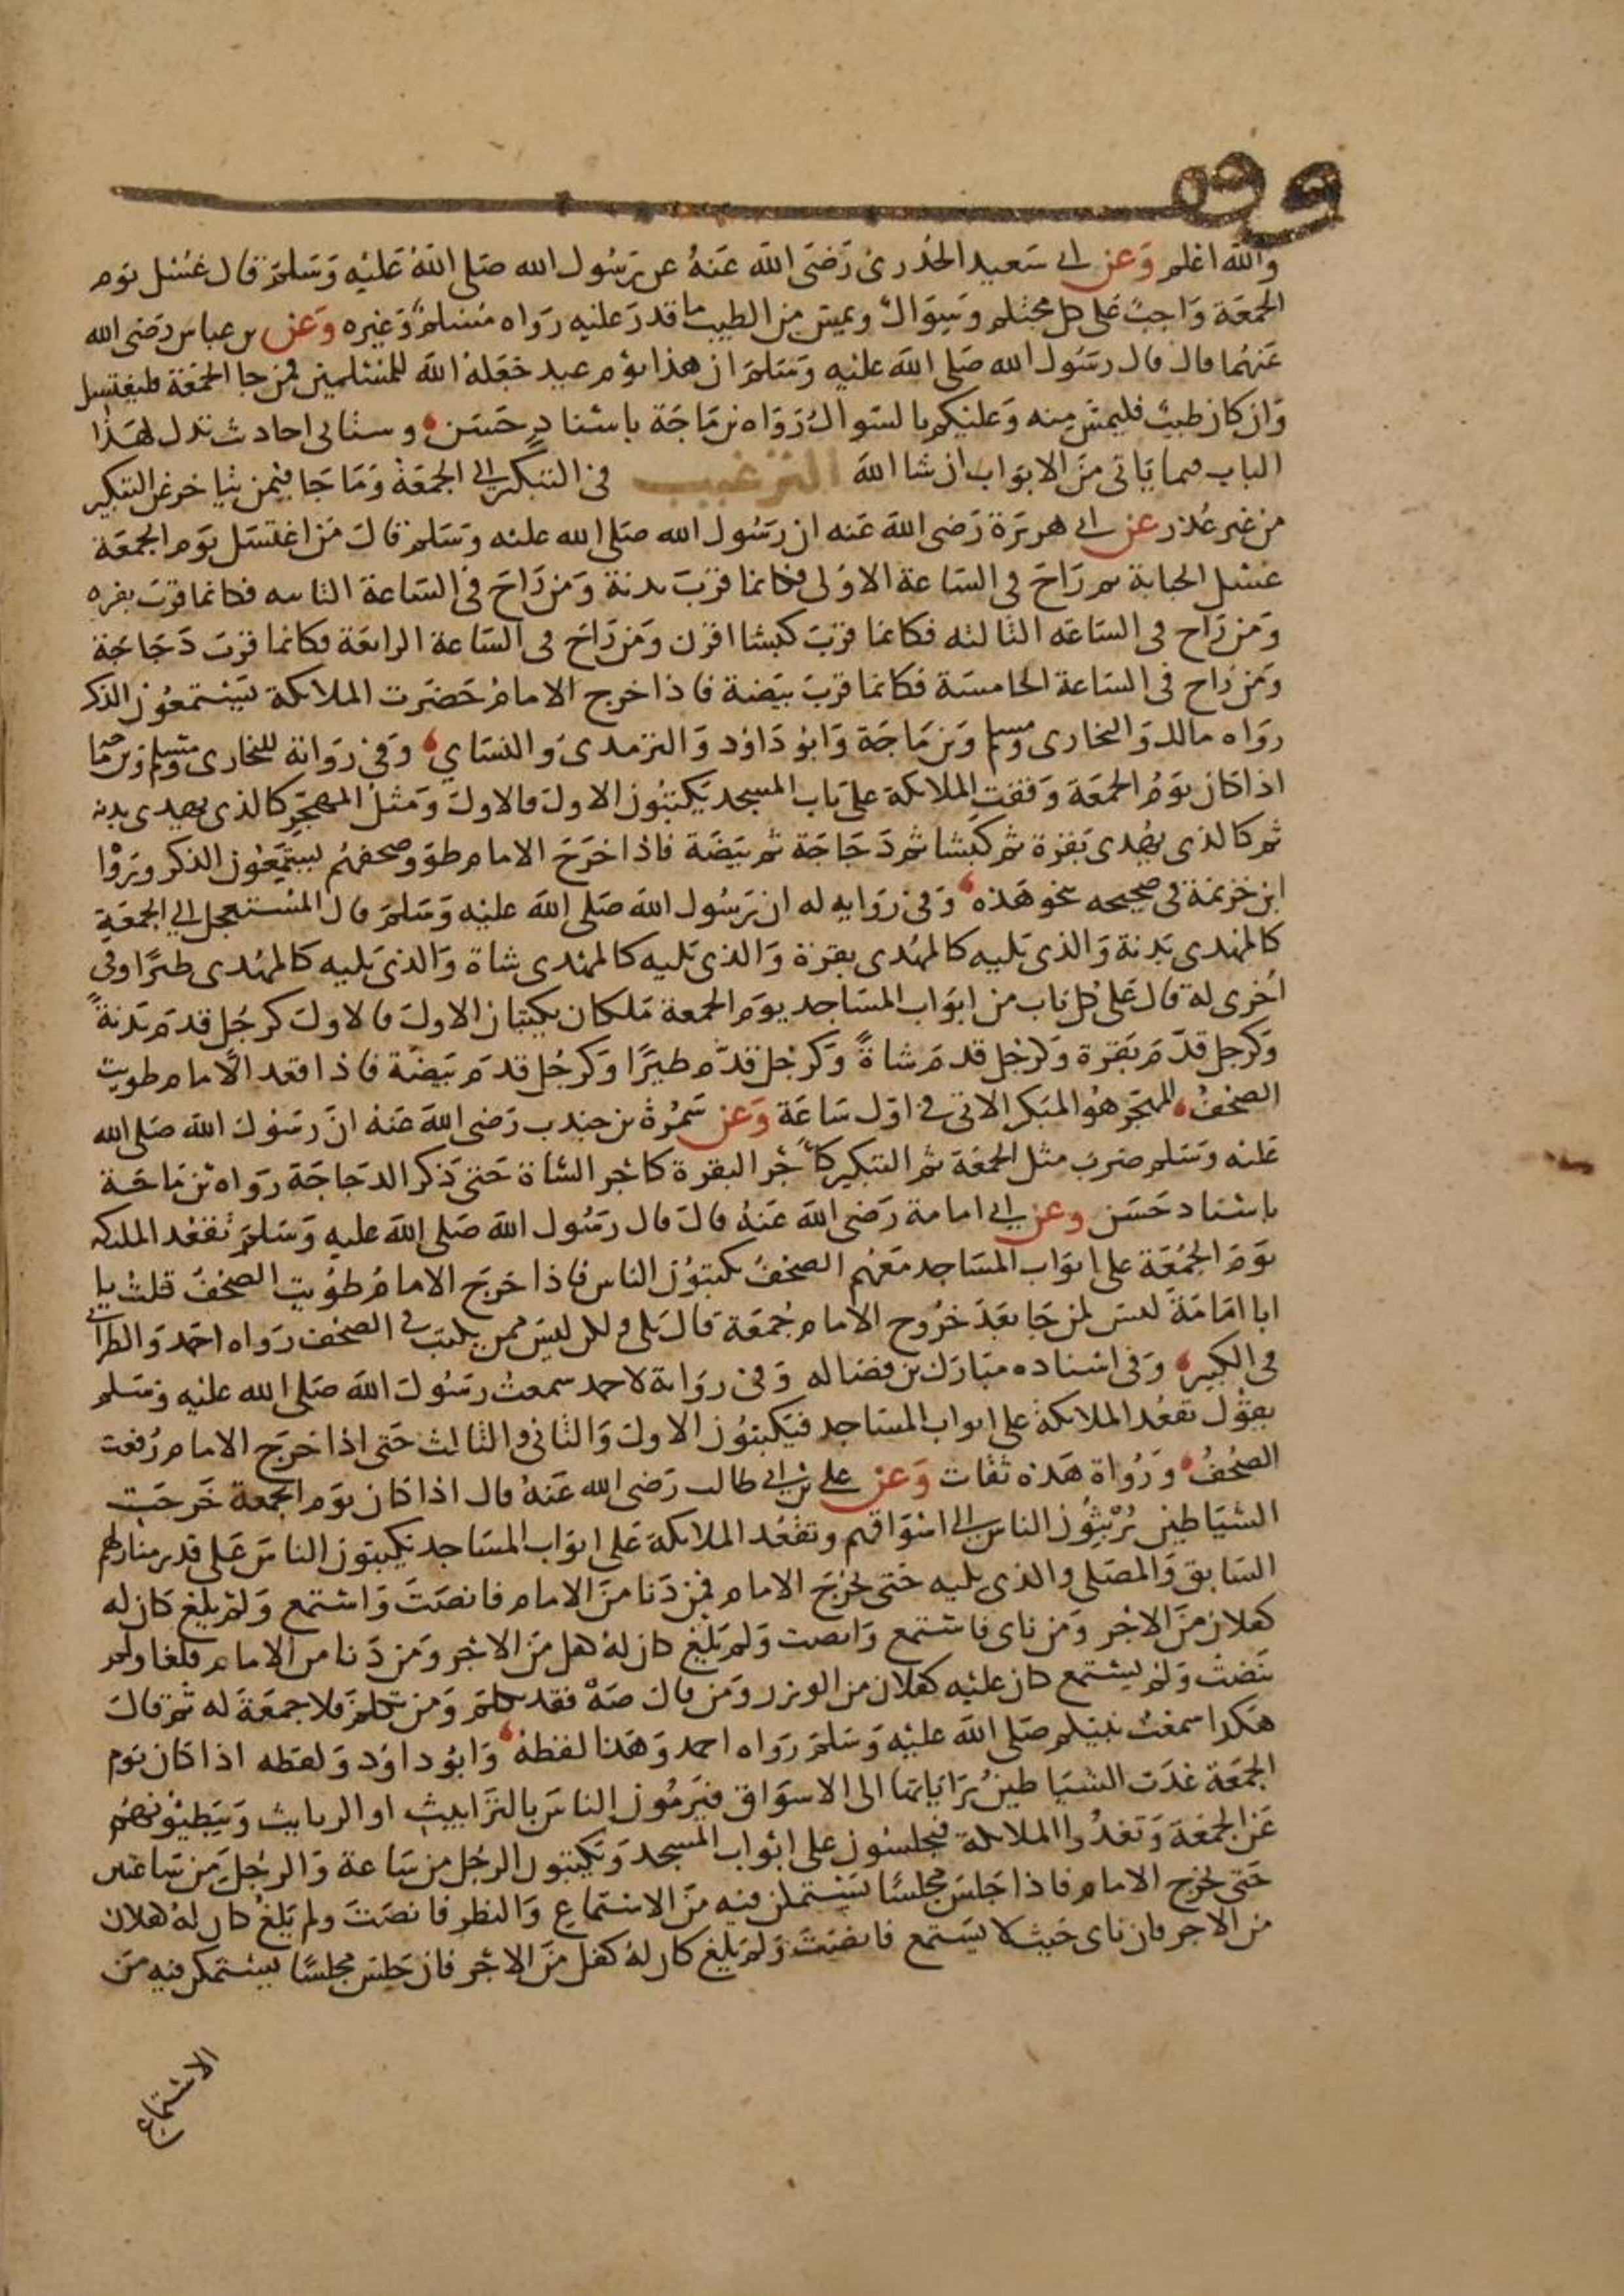 وقف
والله اعلم وعن ابى سعيد الخدرى رضى الله عنه عن رسول الله صلى الله عليه وسلم قال غسل يوم
الجمعة واجب على كل محتلم وسواك ويمس من الطيب ما قدر عليه رواه مسلم وغيره وعن بن عباس رضى الله
عنهما قال قال رسول الله صلى الله عليه وسلم ان هذا يوم عيد جعله الله للمسلمين فمن جا الجمعة فليغتسل
وان كان طيب فليمس منه وعليكم بالسواك رواه بن ماجة باسناد حسن وستاتى احاديث تدل لهذا
الباب فيما ياتى من الابواب ان شا الله الترغيب فى التبكير الى الجمعة وما جا فيمن يتاخر عن التبكير
من غير عذر عن ابى هريرة رضى الله عنه ان رسول الله صلى الله عليه وسلم قال من اغتسل يوم الجمعة
غسل الجنابة ثم راح فى الساعة الاولى فكانما قرب بدنة ومن راح فى الساعة الثانيه فكانما قرب بقره
ومن راح فى الساعه الثالثه فكانما قرب كبشا اقرن ومن راح فى الساعة الرابعة فكانما قرب دجاجة
ومن راح فى الساعة الخامسة فكانما قرب بيضة فاذا خرج الامام حضرت الملايكة يستمعون الذكر
رواه مالك والبخارى ومسلم وبن ماجة وابو داود والترمدى والنساي وفى رواية للبخارى ومسلم وبن ماجه
اذا كان يوم الجمعة وقفت الملايكة على باب المسجد يكتبون الاول فالاول ومثل المهجر كالذى يهدى بدنه
ثم كالذى يهدى بقرة ثم كبشا ثم دجاجة ثم بيضة فاذا خرج الامام طووا صحفهم يستمعون الذكر ورواه
ابن خزيمة فى صحيحه نحو هذه وفى روايه له ان رسول الله صلى الله عليه وسلم قال المستعجل الى الجمعة
كالمهدى بدنة والذى يليه كالمهدى بقرة والذى يليه كالمهدى شاة والذى يليه كالمهدى طيرًا وفى
اخرى له قال على كل باب من ابواب المساجد يوم الجمعة ملكان يكتبان الاول فالاول كرجل قدم بدنةً
وكرجل قدّم بقرة وكرجل قدم شاةً وكرجل قدّم طيرًا وكرجل قدم بيضة فاذا قعد الامام طويت
الصحف المهجر هو المبكر الاتى فى اول ساعة وعن سمرة بن جندب رضى الله عنه ان رسول الله صلى الله
عليه وسلم ضرب مثل الجمعة ثم التبكير كاجر البقرة كاجر الشاة حتى ذكر الدجاجة رواه بن ماجة
باسناد حسن وعن ابى امامة رضى الله عنه قال قال رسول الله صلى الله عليه وسلم تقعد الملايكه
يوم الجمعة على ابواب المساجد معهم الصحف يكتبون الناس فاذا خرج الامام طويت الصحف قلت يا
ابا امامة ليس لمن جا بعد خروج الامام جمعة قال بلى ولكن ليس ممن يكتب فى الصحف رواه احمد والطبرانى
فى الكبير وفى اسناده مبارك بن فضاله وفى رواية لاحمد سمعت رسول الله صلى الله عليه وسلم
يقول تقعد الملايكة على ابواب المساجد فيكتبون الاول والثانى والثالث حتى اذا خرج الامام رفعت
الصحف ورواة هذه ثقات وعن على بن ابى طالب رضى الله عنه قال اذا كان يوم الجمعة خرجت
الشياطين يربثون الناس الى اسواقهم وتقعد الملايكة على ابواب المساجد يكتبون الناس على قدر منازلهم
السابق والمصلى والذى يليه حتى يخرج الامام فمن دنا من الامام فانصت واستمع ولم يلغ كان له
كفلان من الاجر ومن ناى فاستمع وانصت ولم يلغ كان له كفل من الاجر ومن دنا من الامام فلغا ولم
ينصت ولم يستمع كان عليه كفلان من الوزر ومن قال صه فقد تكلم ومن تكلم فلا جمعة له ثم قال
هكذا سمعت نبيكم صلى الله عليه وسلم رواه احمد وهذا لفظه وابو داود ولفظه اذا كان يوم
الجمعة غدت الشياطين براياتها الى الاسواق فيرمون الناس بالترابيث او الربايث ويبطيونهم
عن الجمعة وتغدوا الملايكة فيجلسون على ابواب المسجد ويكتبون الرجل من ساعة والرجل من ساعتين
حتى يخرج الامام فاذا جلس مجلسًا يستمكن فيه من الاستماع والنظر فانصت ولم يلغ كان له كفلان
من الاجر فان ناى حيث لا يستمع فانصت ولم يلغ كان له كفل من الاجر فان جلس مجلسًا يستمكن فيه من
الاستماع